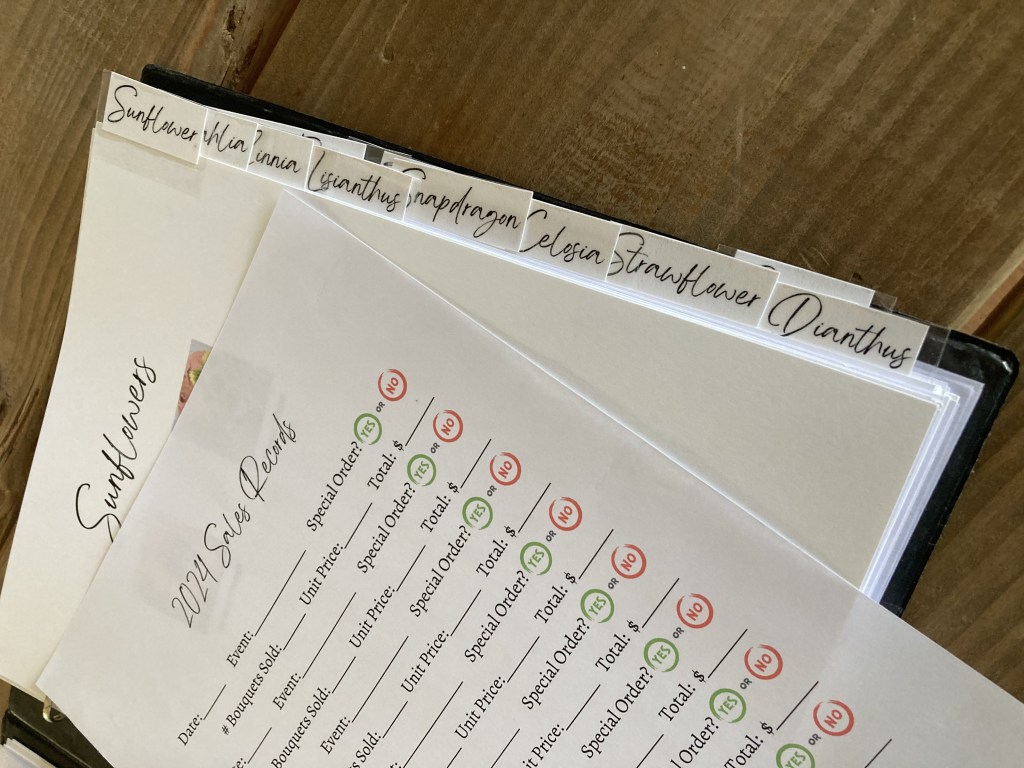 Sunflower
ahlia
innia
Lisianthus
Snapdragon
Celosia
Strawflower
Dianthus
Sunflowers
2024 Sales Records
Date: Event: Special Order? YES OR NO
# Bouquers Sold: Unit Price: Total: $
e: Event: Special Order? YES OR NO
Bouquers Sold: Unit Price: Total: $
Event: Special Order? YES OR NO
s Sold: Unit Price: Total: $
Special Order? YES OR NO
Unit Price: Total: $
Special Order? YES OR NO
it Price: Total: $
Special Order? YES OR NO
Total: $
Order? YES OR NO
Total: $
YES OR NO